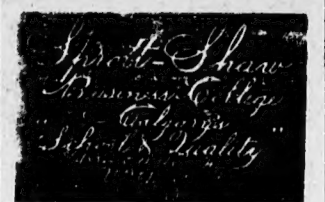 Sprott-Shaw
Business College
" - Calgary's "
School of Quality